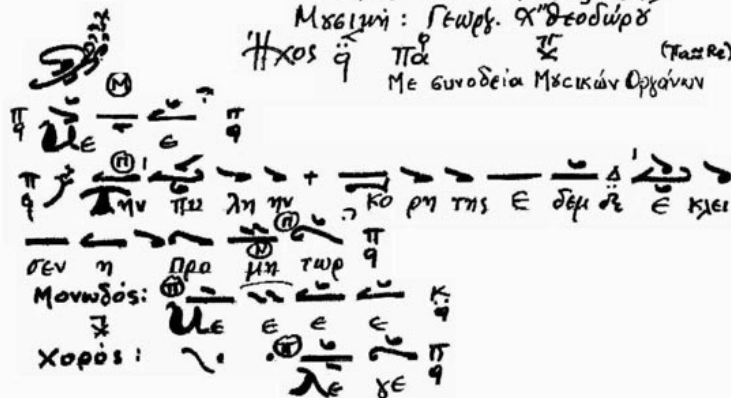 Μȣσική: Γεωργ. Χ"θεοδώρȣ
Ἦχος q̈ πᾶ (πα=Re)
Με συνοδεία Μȣσικών Οργάνων
π q Με ε π q
π q Την πυ λη ην + κο ρη της Ε δεμ Δ ε κλει
σεν η προ μη τωρ π q
Μονωδός: Με ε ε ε κ q̈
Χορός: λε γε π q